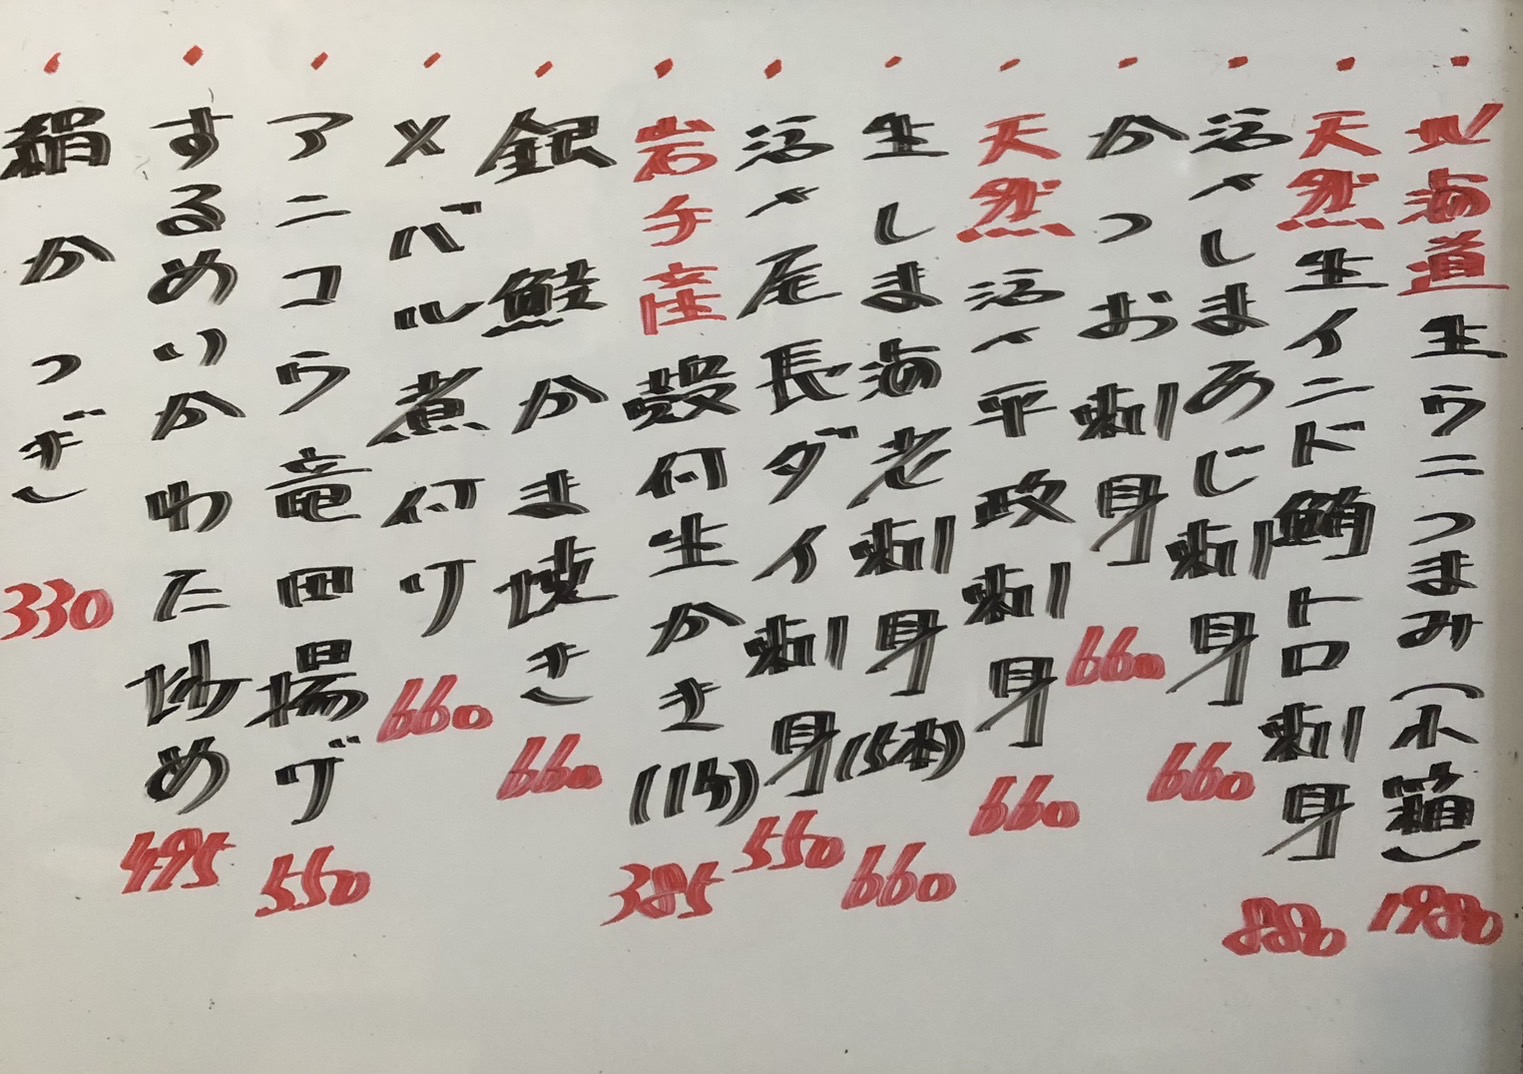 ・北海道生ウニつまみ(小箱) 1980
・天然生インド鮪トロ刺身 880
・活〆しまあじ刺身 660
・かつお刺身 660
・天然活〆平政刺身 660
・生しま海老刺身(5本) 660
・活〆尾長ダイ刺身 550
・岩手産殻付生かき(1ケ) 385
・銀鮭かま焼き 660
・メバル煮付け 660
・アンコウ竜田揚げ 550
・するめいかわた炒め 495
・絹かつぎ 330